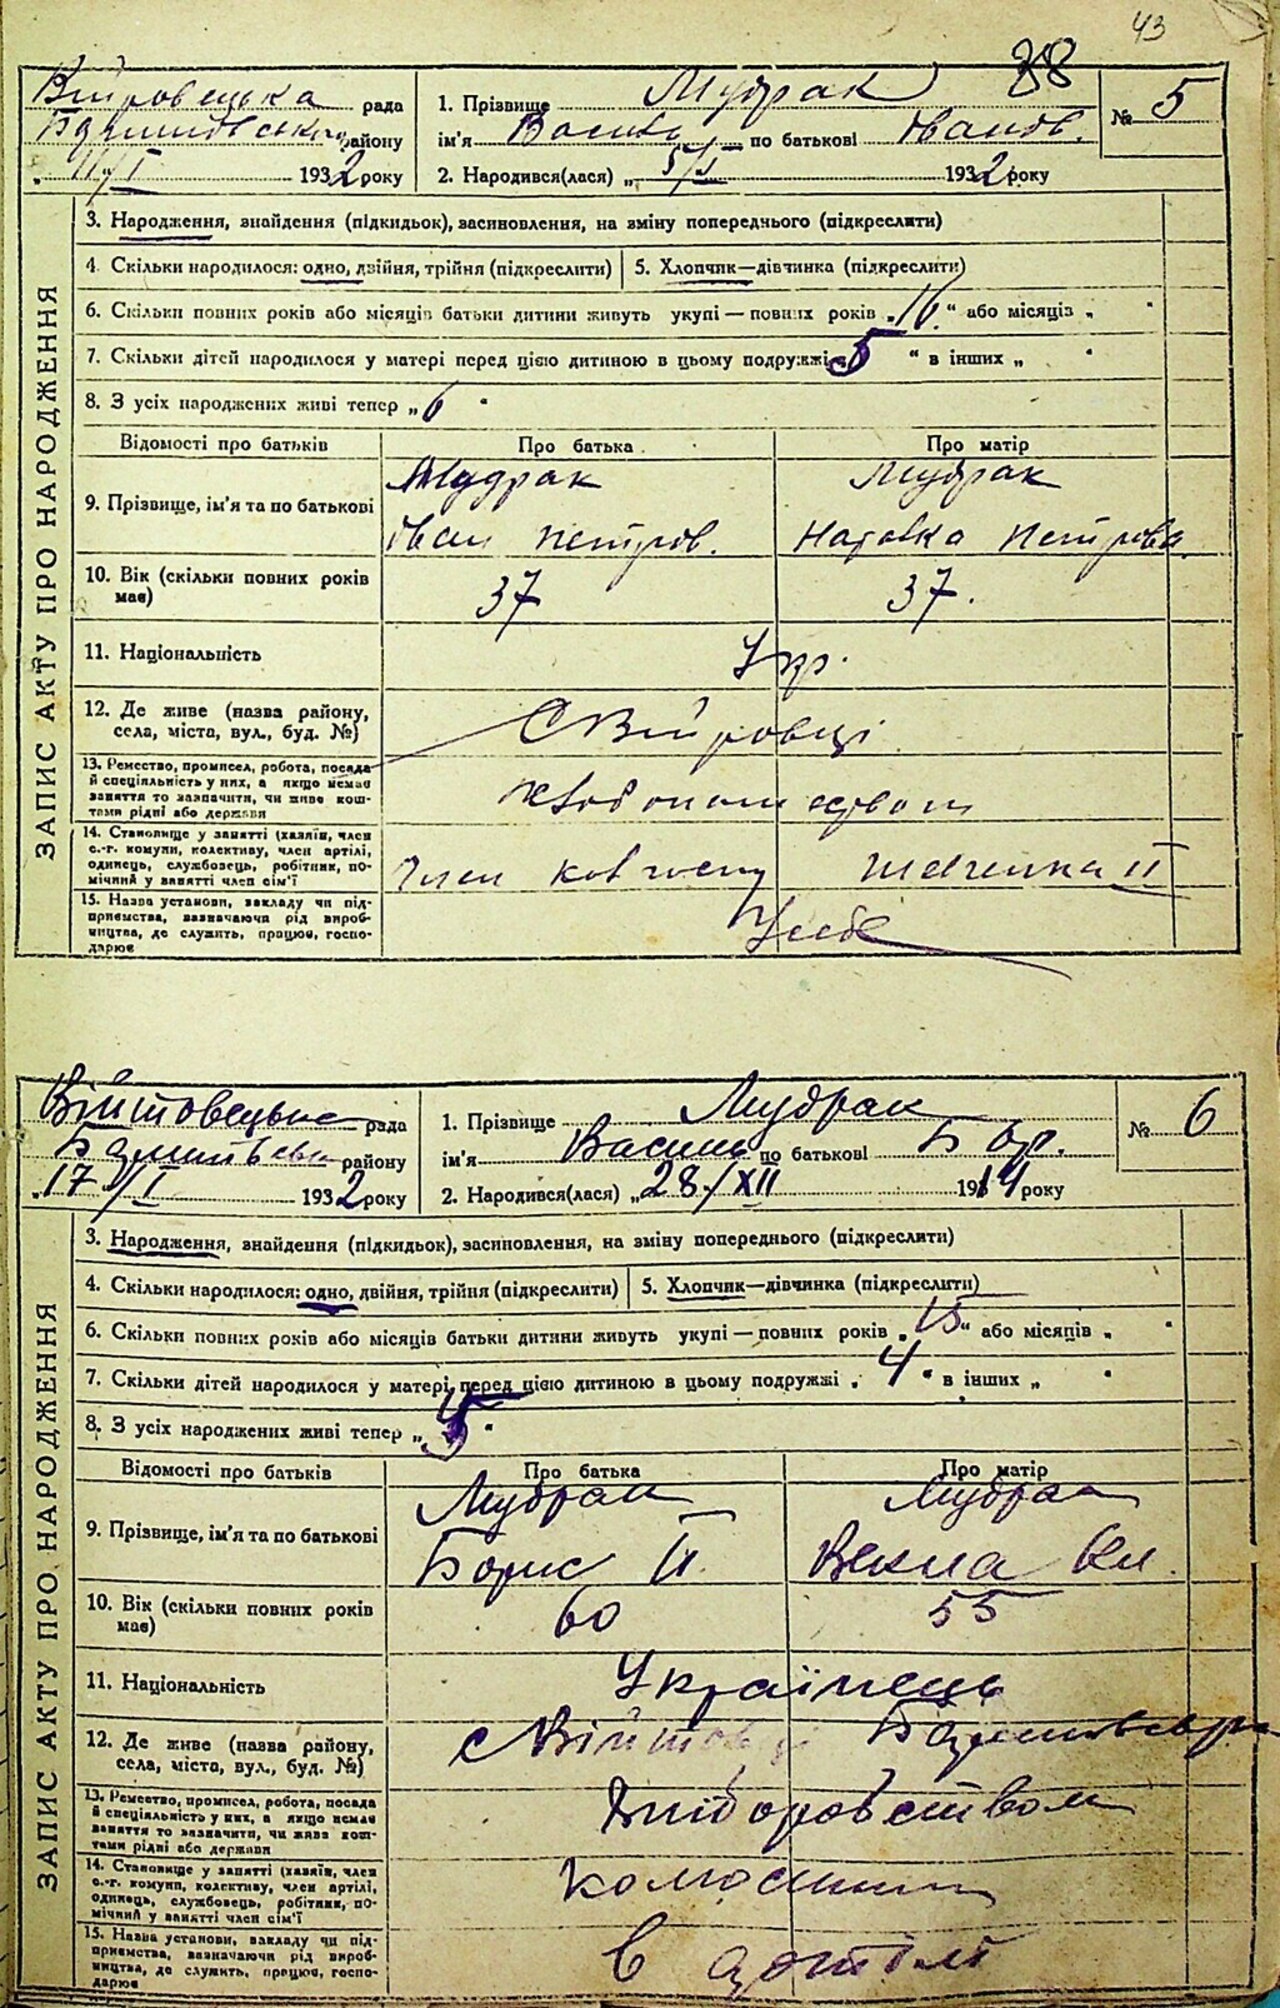 43
38
Війтовецька рада
району
„ 11/I 1932 року
1. Прізвище Мудрак
ім'я Василь по батькові Іванов.
2. Народився(лася) „ 5/I 1932 року
№ 5
ЗАПИС АКТУ ПРО НАРОДЖЕННЯ
3. Народження, знайдення (підкидьок), засиновлення, на зміну попереднього (підкреслити)
4. Скільки народилося: одно, двійня, трійня (підкреслити) 5. Хлопчик—дівчинка (підкреслити)
6. Скільки повних років або місяців батьки дитини живуть укупі — повних років „16“ або місяців „ “
7. Скільки дітей народилося у матері перед цією дитиною в цьому подружжі „5“ в інших „ “
8. З усіх народжених живі тепер „6“
Відомості про батьків Про батька Про матір
9. Прізвище, ім'я та по батькові
Мудрак Мудрак
Іван Петров. Петровн.
10. Вік (скільки повних років
має)
37 37.
11. Національність Укр.
12. Де живе (назва району,
села, міста, вул., буд. №)
13. Ремество, промисел, робота, посада
й спеціяльність у них, а якщо немає
заняття то зазначити, чи живе кош-
тами рідні або держави
14. Становище у занятті (хазяїн, член
с.-г. комуни, колективу, член артілі,
одинець, службовець, робітник, по-
мічний у занятті член сім'ї
Член
15. Назва установи, закладу чи під-
приємства, зазначаючи рід вироб-
ництва, де служить, працює, госпо-
дарює
Війтовецька рада
району
„17“/I 1932 року
1. Прізвище Мудрак
ім'я Василь по батькові Бор.
2. Народився(лася) „28“/XII 1914 року
№ 6
ЗАПИС АКТУ ПРО НАРОДЖЕННЯ
3. Народження, знайдення (підкидьок), засиновлення, на зміну попереднього (підкреслити)
4. Скільки народилося: одно, двійня, трійня (підкреслити) 5. Хлопчик—дівчинка (підкреслити)
6. Скільки повних років або місяців батьки дитини живуть укупі — повних років „15“ або місяців „ “
7. Скільки дітей народилося у матері перед цією дитиною в цьому подружжі „4“ в інших „ “
8. З усіх народжених живі тепер „5“
Відомості про батьків Про батька Про матір
9. Прізвище, ім'я та по батькові
Мудрак Мудрак
Борис
10. Вік (скільки повних років
має)
60 55
11. Національність Українець
12. Де живе (назва району,
села, міста, вул., буд. №)
13. Ремество, промисел, робота, посада
й спеціяльність у них, а якщо немає
заняття то зазначити, чи живе кош-
тами рідні або держави
Хліборобством
14. Становище у занятті (хазяїн, член
с.-г. комуни, колективу, член артілі,
одинець, службовець, робітник, по-
мічний у занятті член сім'ї
15. Назва установи, закладу чи під-
приємства, зазначаючи рід вироб-
ництва, де служить, працює, госпо-
дарює
в артілі